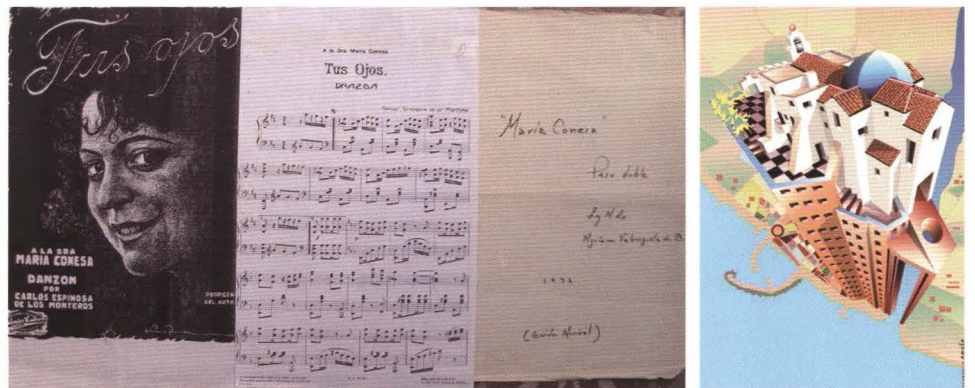 Tus ojos
A LA SRA
MARIA CONESA
DANZON
POR
CARLOS ESPINOSA
DE LOS MONTEROS
PROPIEDAD
DEL AUTOR
A la Sra. María Conesa
Tus Ojos.
DANZON
"María Conesa"
Paso doble
L y M de
1973